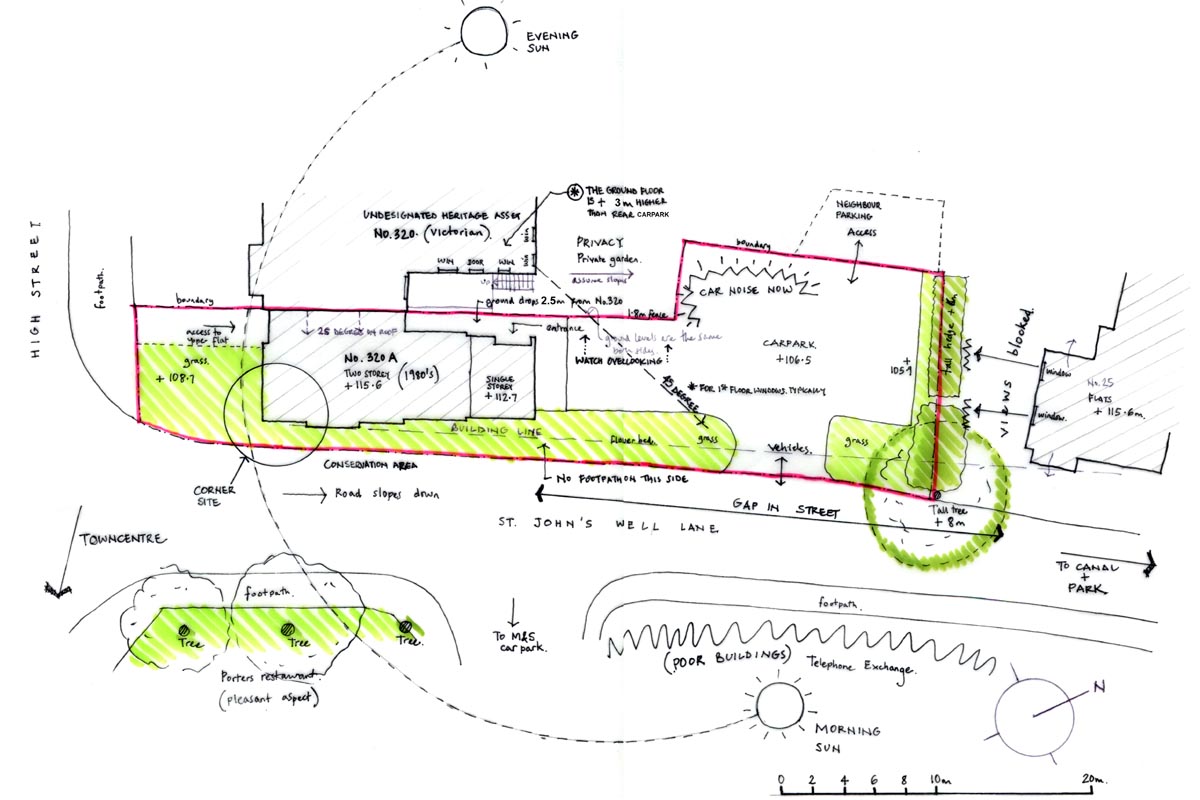 EVENING
SUN
HIGH STREET
footpath.
UNDESIGNATED HERITAGE ASSET
No. 320. (Victorian).
THE GROUND FLOOR
IS + 3m HIGHER
THAN REAR CARPARK
NEIGHBOUR
PARKING
Access
WIN DOOR WIN
WIN
WIN
UP
PRIVACY.
Private garden.
assume slopes
boundary
CAR NOISE NOW
boundary
ground drops 2.5m from No.320
1.8m fence
access to
upper flat
25 DEGREE
ROOF
entrance
ground levels are the same
both sides.
WATCH OVERLOOKING
grass.
+ 108.7
No. 320 A
TWO STOREY
+ 115.6
(1980's)
SINGLE
STOREY
+ 112.7
CARPARK
+106.5
45 DEGREE
* FOR 1ST FLOOR WINDOWS. TYPICALLY
105.9
+
tall hedge + 6m
VIEWS blocked.
window
window.
No. 25
FLATS
+ 115.6m.
BUILDING LINE
flower bed.
grass
vehicles.
grass
CONSERVATION AREA
NO FOOTPATH ON THIS SIDE
CORNER
SITE
Road slopes down
GAP IN STREET
Tall tree
+ 8m
ST. JOHN'S WELL LANE
TOWNCENTRE
TO CANAL
+
PARK
footpath.
footpath.
Tree
Tree
Tree.
To M&S
car park.
(POOR BUILDINGS)
Telephone Exchange.
Porters restaurant.
(pleasant aspect)
MORNING
SUN
N
0 2 4 6 8 10m 20m.